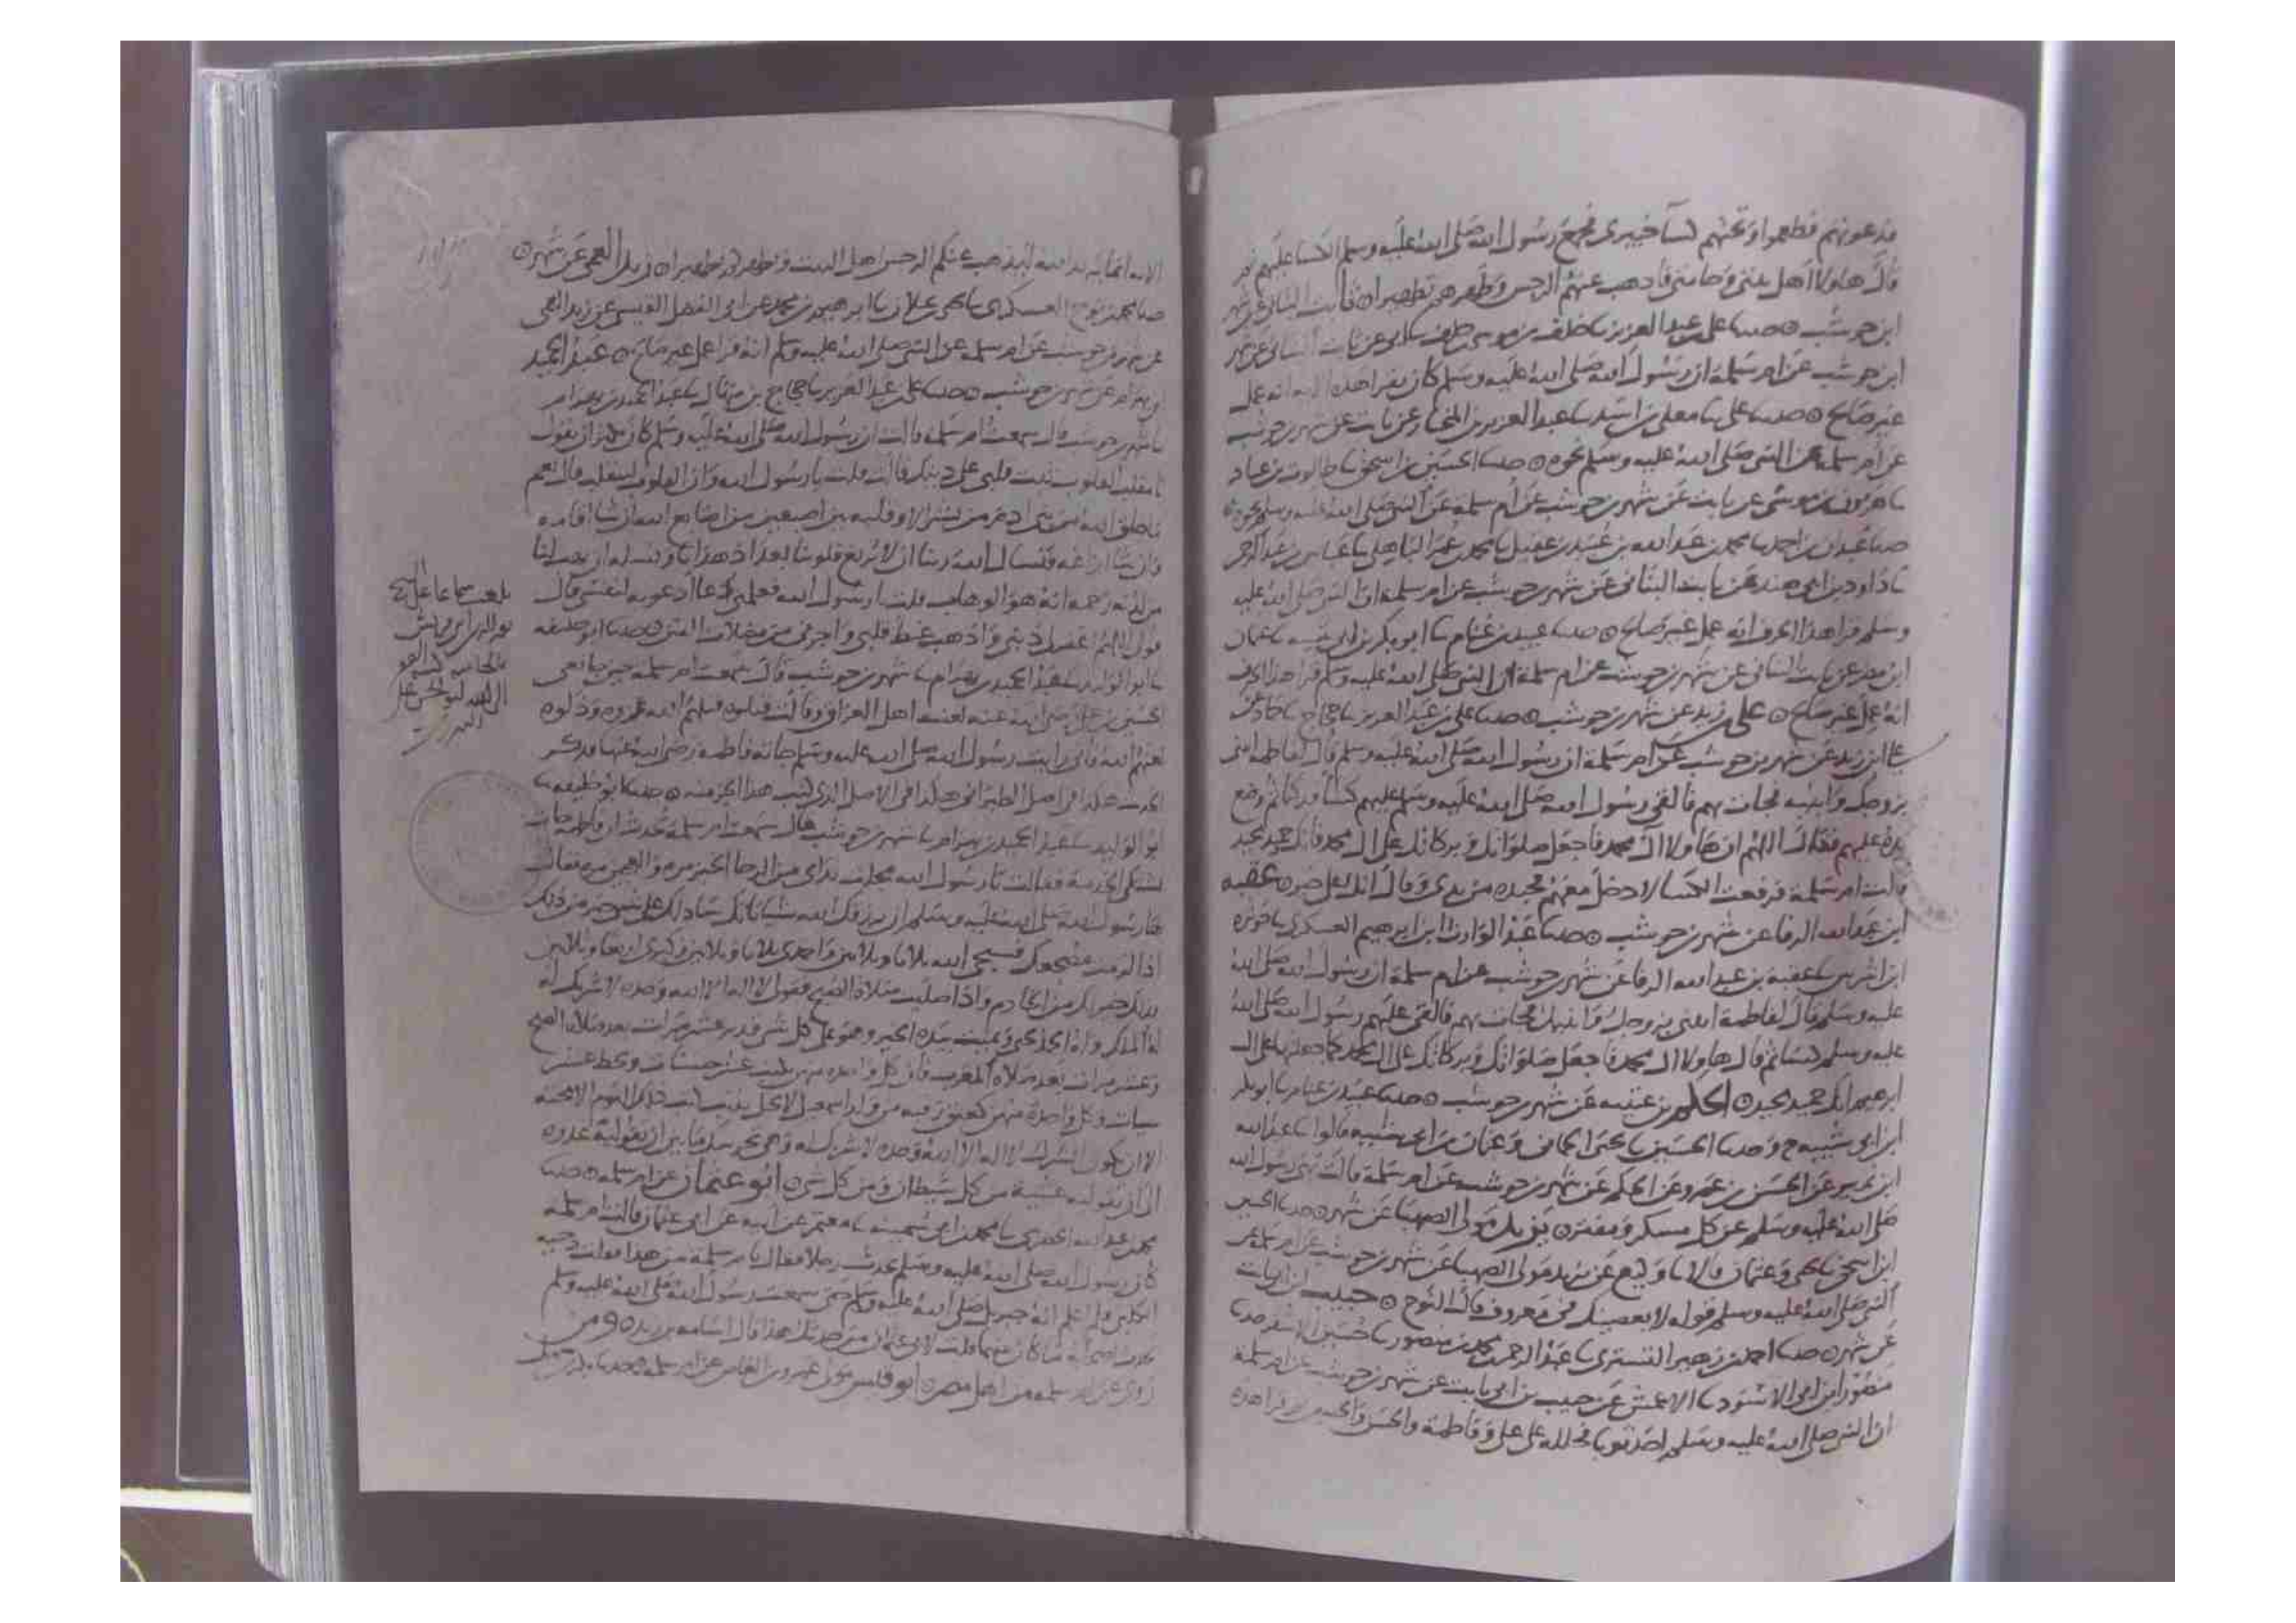 فدعوتهم فطعموا وتحتهم كساء خيبري فجمع رسول الله صلى الله عليه وسلم الكساء عليهم ثم
قال هاولا اهل بيتي وحامتي فاذهب عنهم الرجس وطهرهم تطهيرا ۞ ثابت البناني عن شهر
ابن حوشب ۞ حدثنا علي بن عبد العزيز نا خلف بن موسى بن خلف نا ابي عن ثابت البناني عن شهر
ابن حوشب عن ام سلمة ان رسول الله صلى الله عليه وسلم كان يقرا هذه الاية انه عمل
غير صالح ۞ حدثنا علي نا معلى بن اسد نا عبد العزيز بن المختار عن ثابت عن شهر بن حوشب
عن ام سلمة عن النبي صلى الله عليه وسلم نحوه ۞ حدثنا الحسين بن اسحق نا طالوت بن عباد
نا هرون بن موسى عن ثابت عن شهر بن حوشب عن ام سلمة عن النبي صلى الله عليه وسلم نحوه ۞
حدثنا عبدان بن احمد نا محمد بن عبد الله بن عبيد بن عقيل نا محمد بن عمر الباهلي نا عباس بن عبد الرحمن
نا داود بن ابي هند عن ثابت البناني عن شهر بن حوشب عن ام سلمة ان النبي صلى الله عليه
وسلم قرا هذا الحرف انه عمل غير صالح ۞ حدثنا عبيد بن غنام نا ابو بكر بن ابي شيبة نا عثمان
ابن مطر عن ثابت البناني عن شهر بن حوشب عن ام سلمة ان النبي صلى الله عليه وسلم قرا هذا الحرف
انه عمل غير صالح ۞ علي بن زيد عن شهر بن حوشب ۞ حدثنا علي بن عبد العزيز نا حجاج نا حماد عن
علي ابن زيد عن شهر بن حوشب عن ام سلمة ان رسول الله صلى الله عليه وسلم قال لفاطمة ايتني
بزوجك وابنيه فجات بهم فالقى رسول الله صلى الله عليه وسلم عليهم كساء فدكيا ثم وضع
يده عليهم فقال اللهم ان هاولا ال محمد فاجعل صلواتك وبركاتك على ال محمد فانك حميد مجيد
قالت ام سلمة فرفعت الكسا لادخل معهم فجبذه من يدي وقال انك على خير ۞ عقبة
ابن عبد الله الرفاعي عن شهر بن حوشب ۞ حدثنا عبد الوارث ابن ابرهيم العسكري نا حوثرة
ابن اشرس نا عقبة بن عبد الله الرفاعي عن شهر بن حوشب عن ام سلمة ان رسول الله صلى الله
عليه وسلم قال لفاطمة ايتني بزوجك وابنيك فجات بهم فالقى عليهم رسول الله صلى الله
عليه وسلم كساء ثم قال هاولا ال محمد فاجعل صلواتك وبركاتك على ال محمد كما جعلتها على ال
ابرهيم انك حميد مجيد ۞ الحكم بن عتيبة عن شهر بن حوشب ۞ حدثنا عبيد بن غنام نا ابو بكر
ابن ابي شيبة ح وحدثنا الحسين نا يحيى الحماني وعثمان بن ابي شيبة قالوا نا عبد الله
ابن نمير عن الحسن بن عمرو عن الحكم عن شهر بن حوشب عن ام سلمة قالت نهى رسول الله
صلى الله عليه وسلم عن كل مسكر ومفتر ۞ يزيد مولى الصهبا عن شهر ۞ حدثنا الحسين
ابن اسحق نا يحيى وعثمان قالا نا وكيع عن يزيد مولى الصهبا عن شهر بن حوشب عن ام سلمة عن
النبي صلى الله عليه وسلم قوله لا يعصينك في معروف قال النوح ۞ حبيب بن ابي ثابت
عن شهر ۞ حدثنا احمد بن زهير التستري نا عبد الرحمن بن محمد بن منصور نا حسين الاشقر حدثنا
منصور ابن ابي الاسود نا الاعمش عن حبيب بن ابي ثابت عن شهر بن حوشب عن ام سلمة
ان النبي صلى الله عليه وسلم اخذ ثوبا فجلله على علي وفاطمة والحسن والحسين ثم قرا هذه
الاية انما يريد الله ليذهب عنكم الرجس اهل البيت ويطهركم تطهيرا ۞ زيد العمي عن شهر ۞
حدثنا محمد بن نوح العسكري نا يحيى بن علان نا ابرهيم بن محمد عن ابي الفضل القيسي عن زيد العمي
عن شهر بن حوشب عن ام سلمة عن النبي صلى الله عليه وسلم انه قرا عمل غير صالح ۞ عبد الحميد
ابن بهرام عن شهر بن حوشب ۞ حدثنا علي بن عبد العزيز نا حجاج بن منهال نا عبد الحميد بن بهرام
نا شهر بن حوشب قال سمعت ام سلمة قالت ان رسول الله صلى الله عليه وسلم كان يكثر ان يقول
يا مقلب القلوب ثبت قلبي على دينك قالت قلت يا رسول الله وان القلوب لتتقلب قال نعم
ما خلق الله من بني ادم من بشر الا وقلبه بين اصبعين من اصابع الله ان شا اقامه
وان شا ازاغه فنسال الله ربنا ان لا يزيغ قلوبنا بعد اذ هدانا ونسله ان يهب لنا
من لدنه رحمة انه هو الوهاب قلت يا رسول الله فعلمني دعا ادعو به لنفسي قال
قولي اللهم اغفر لي ذنبي واذهب غيظ قلبي واجرني من مضلات الفتن ۞ حدثنا ابو خليفة
نا ابو الوليد نا عبد الحميد بن بهرام نا شهر بن حوشب قال سمعت ام سلمة حين جا نعي
الحسين بن علي رضي الله عنه لعنت اهل العراق وقالت قتلوه قتلهم الله غروه وذلوه
لعنهم الله فاني رايت رسول الله صلى الله عليه وسلم جاته فاطمة رضي الله عنها فذكر
الحديث هكذا في اصل الطبراني هكذا في الاصل الذي كتب هذا الجز منه ۞ حدثنا ابو خليفة نا
ابو الوليد نا عبد الحميد بن بهرام نا شهر بن حوشب قال سمعت ام سلمة تحدث ان فاطمة جات
تشتكي الخدمة فقالت يا رسول الله مجلت يداي من الرحا اخبز مرة واعجن مرة فقال
لها رسول الله صلى الله عليه وسلم ان يرزقك الله شيا ياتك سادلك على شي خير من ذلك
اذا لزمت مضجعك فسبحي الله ثلاثا وثلاثين واحمدي ثلاثا وثلاثين وكبري اربعا وثلاثين
فذلك خير لك من الخادم واذا صليت صلاة الصبح فقولي لا اله الا الله وحده لا شريك له
له الملك وله الحمد يحيي ويميت بيده الخير وهو على كل شي قدير عشر مرات بعد صلاة الصبح
وعشر مرات بعد صلاة المغرب فان كل واحدة منهن تكتب عشر حسنات وتحط عشر
سيات وكل واحدة منهن كعتق رقبة من ولد اسمعيل ولا يحل لذنب كسب ذلك اليوم ان يدركه
الا ان يكون الشرك لا اله الا الله وحده لا شريك له وهي تحرسك ما بين ان تقوليه غدوة
الى ان تقوليه عشية من كل شيطان ومن كل شر ۞ ابو عثمان عن ام سلمة ۞ حدثنا
محمد بن عبد الله الحضرمي نا محمد بن ابي سمينة نا معتمر عن ابيه عن ابي عثمان قالت ام سلمة
كان رسول الله صلى الله عليه وسلم يحدث رجلا فقال يا ام سلمة من هذا فقلت دحية
الكلبي ولم اعلم انه جبريل صلى الله عليه وسلم حتى سمعت رسول الله صلى الله عليه وسلم
يحدث اصحابه ما كان بينهما قلت لابي عثمان من حدثك هذا قال اسامة بن زيد ۞ ومن
روى عن ام سلمة من اهل مصر ۞ ابو قيس مولى عمرو بن العاص عن ام سلمة ۞ حدثنا بكر بن سهل
بلغت سماعا على الشيخ